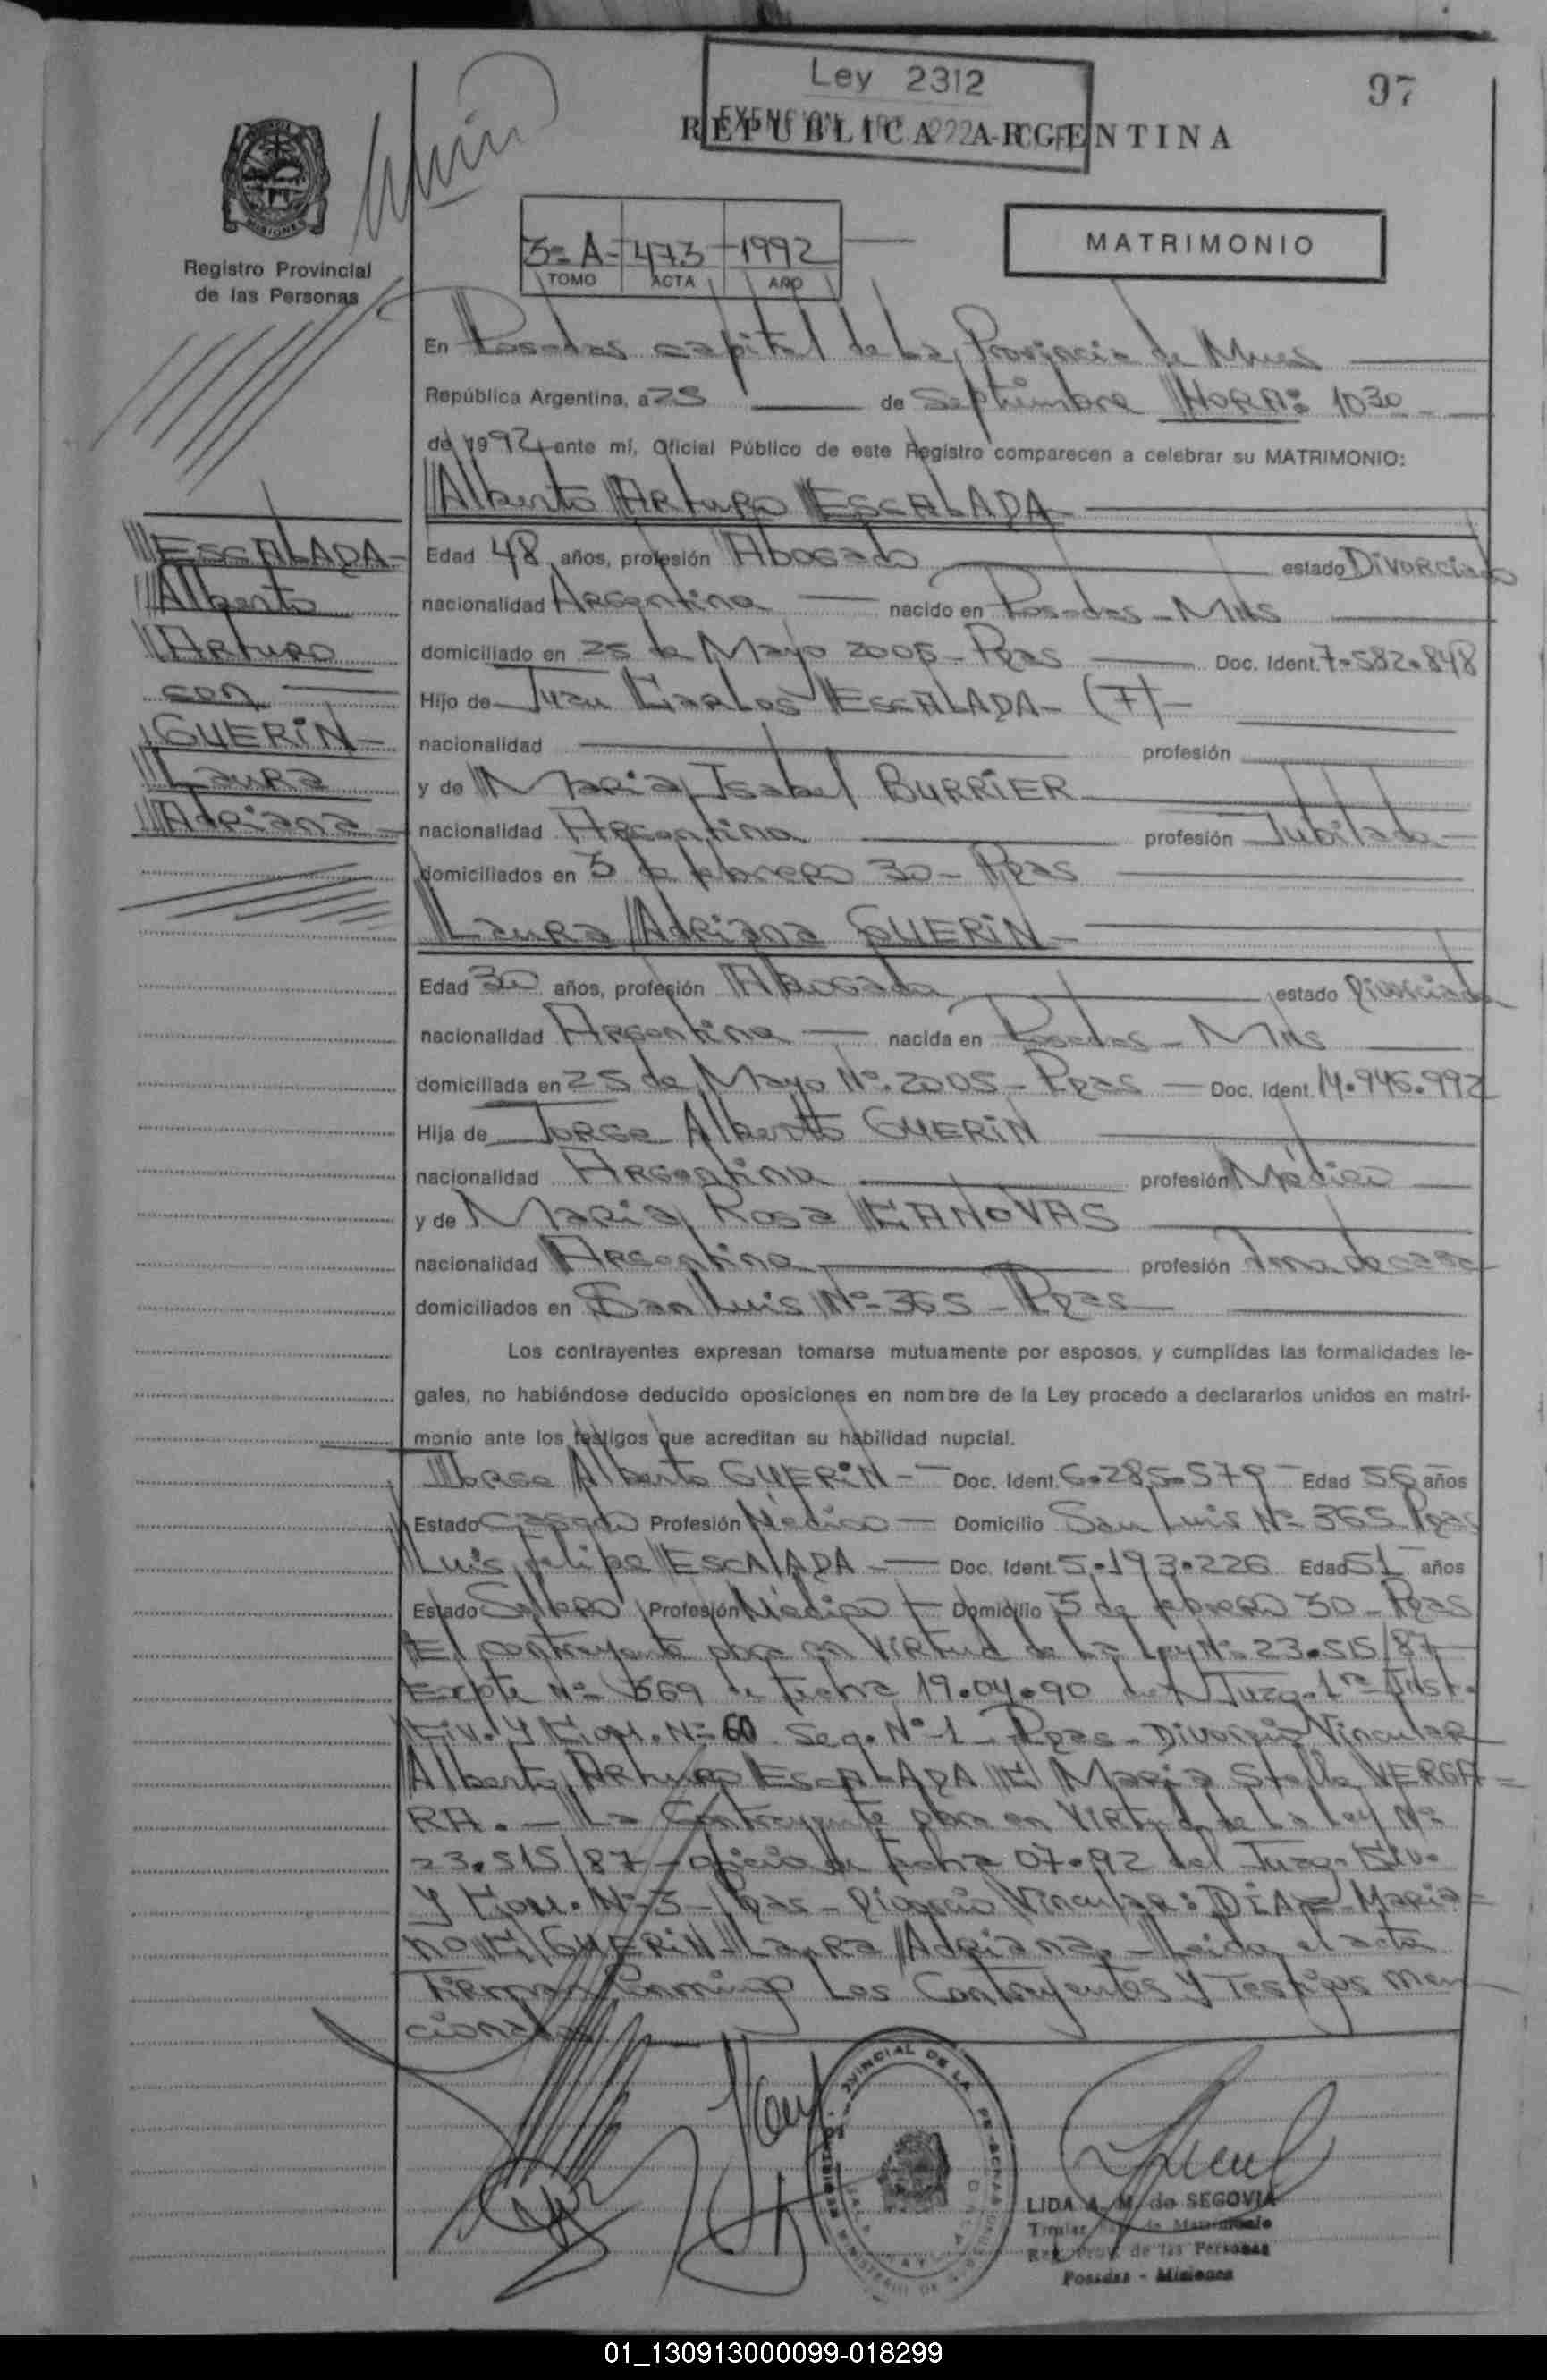 Ley 2312
97
REPUBLICA ARGENTINA
MISIONES
Registro Provincial
de las Personas
3º A - 473 - 1992
TOMO ACTA AÑO
MATRIMONIO
En Posadas capital de La Provincia de Mnes
República Argentina, a 25 de Septiembre HORA: 1030
de 1992, ante mí, Oficial Público de este Registro comparecen a celebrar su MATRIMONIO:
Alberto ARturo ESCALADA
ESCALADA
Alberto
ARturo
con
GUERiN
Laura
Adriana
Edad 48 años, profesión Abogado estado Divorciado
nacionalidad Argentina nacido en Posadas - Mnes
domiciliado en 25 de Mayo 2005 - Pdas Doc. Ident. 7.582.848
Hijo de Juan Carlos ESCALADA - (F) -
nacionalidad profesión
y de Maria Isabel BURRiER
nacionalidad Argentina profesión Jubilada
domiciliados en 3 de febrero 30 - Pdas
Laura Adriana GUERiN
Edad 30 años, profesión Abogada estado Divorciada
nacionalidad Argentina nacida en Posadas - Mnes
domiciliada en 25 de Mayo Nº 2005 - Pdas Doc. Ident. 14.946.992
Hija de Jorge Alberto GUERiN
nacionalidad Argentina profesión Médico
y de Maria Rosa CANOVAS
nacionalidad Argentina profesión Ama de casa
domiciliados en San Luis Nº 365 - Pdas
Los contrayentes expresan tomarse mutuamente por esposos, y cumplidas las formalidades le-
gales, no habiéndose deducido oposiciones en nombre de la Ley procedo a declararlos unidos en matri-
monio ante los testigos que acreditan su habilidad nupcial.
Jorge Alberto GUERiN - Doc. Ident. 6.285.579 Edad 56 años
Estado Casado Profesión Médico - Domicilio San Luis Nº 365 Pdas
Luis felipe ESCALADA - Doc. Ident. 5.193.226 Edad 51 años
Estado Soltero Profesión Médico - Domicilio 3 de febrero 30 - Pdas
El contrayente obra en virtud de La Ley Nº 23.515/87
Expte Nº 369 de fecha 19.04.90 del Juzg. 1ra Inst.
Civ. y Com. Nº 60 Sec. Nº 1 - Pdas - Divorcio Vincular
Alberto ARturo ESCALADA C/ Maria Stella VERGA=
RA. - La Contrayente obra en virtud de La Ley Nº
23.515/87 - oficio de fecha 07.92 del Juzg. Civ.
y Com. Nº 3 - Pdas - Divorcio Vincular: DIAZ Maria=
no C/ GUERiN Laura Adriana. - Leida el acta
firman conmigo Los Contrayentes y Testigos men
cionados
LIDA A. M. de SEGOVIA
Titular de Matrimonio
Reg. Prov. de las Personas
Posadas - Misiones
01_130913000099-018299